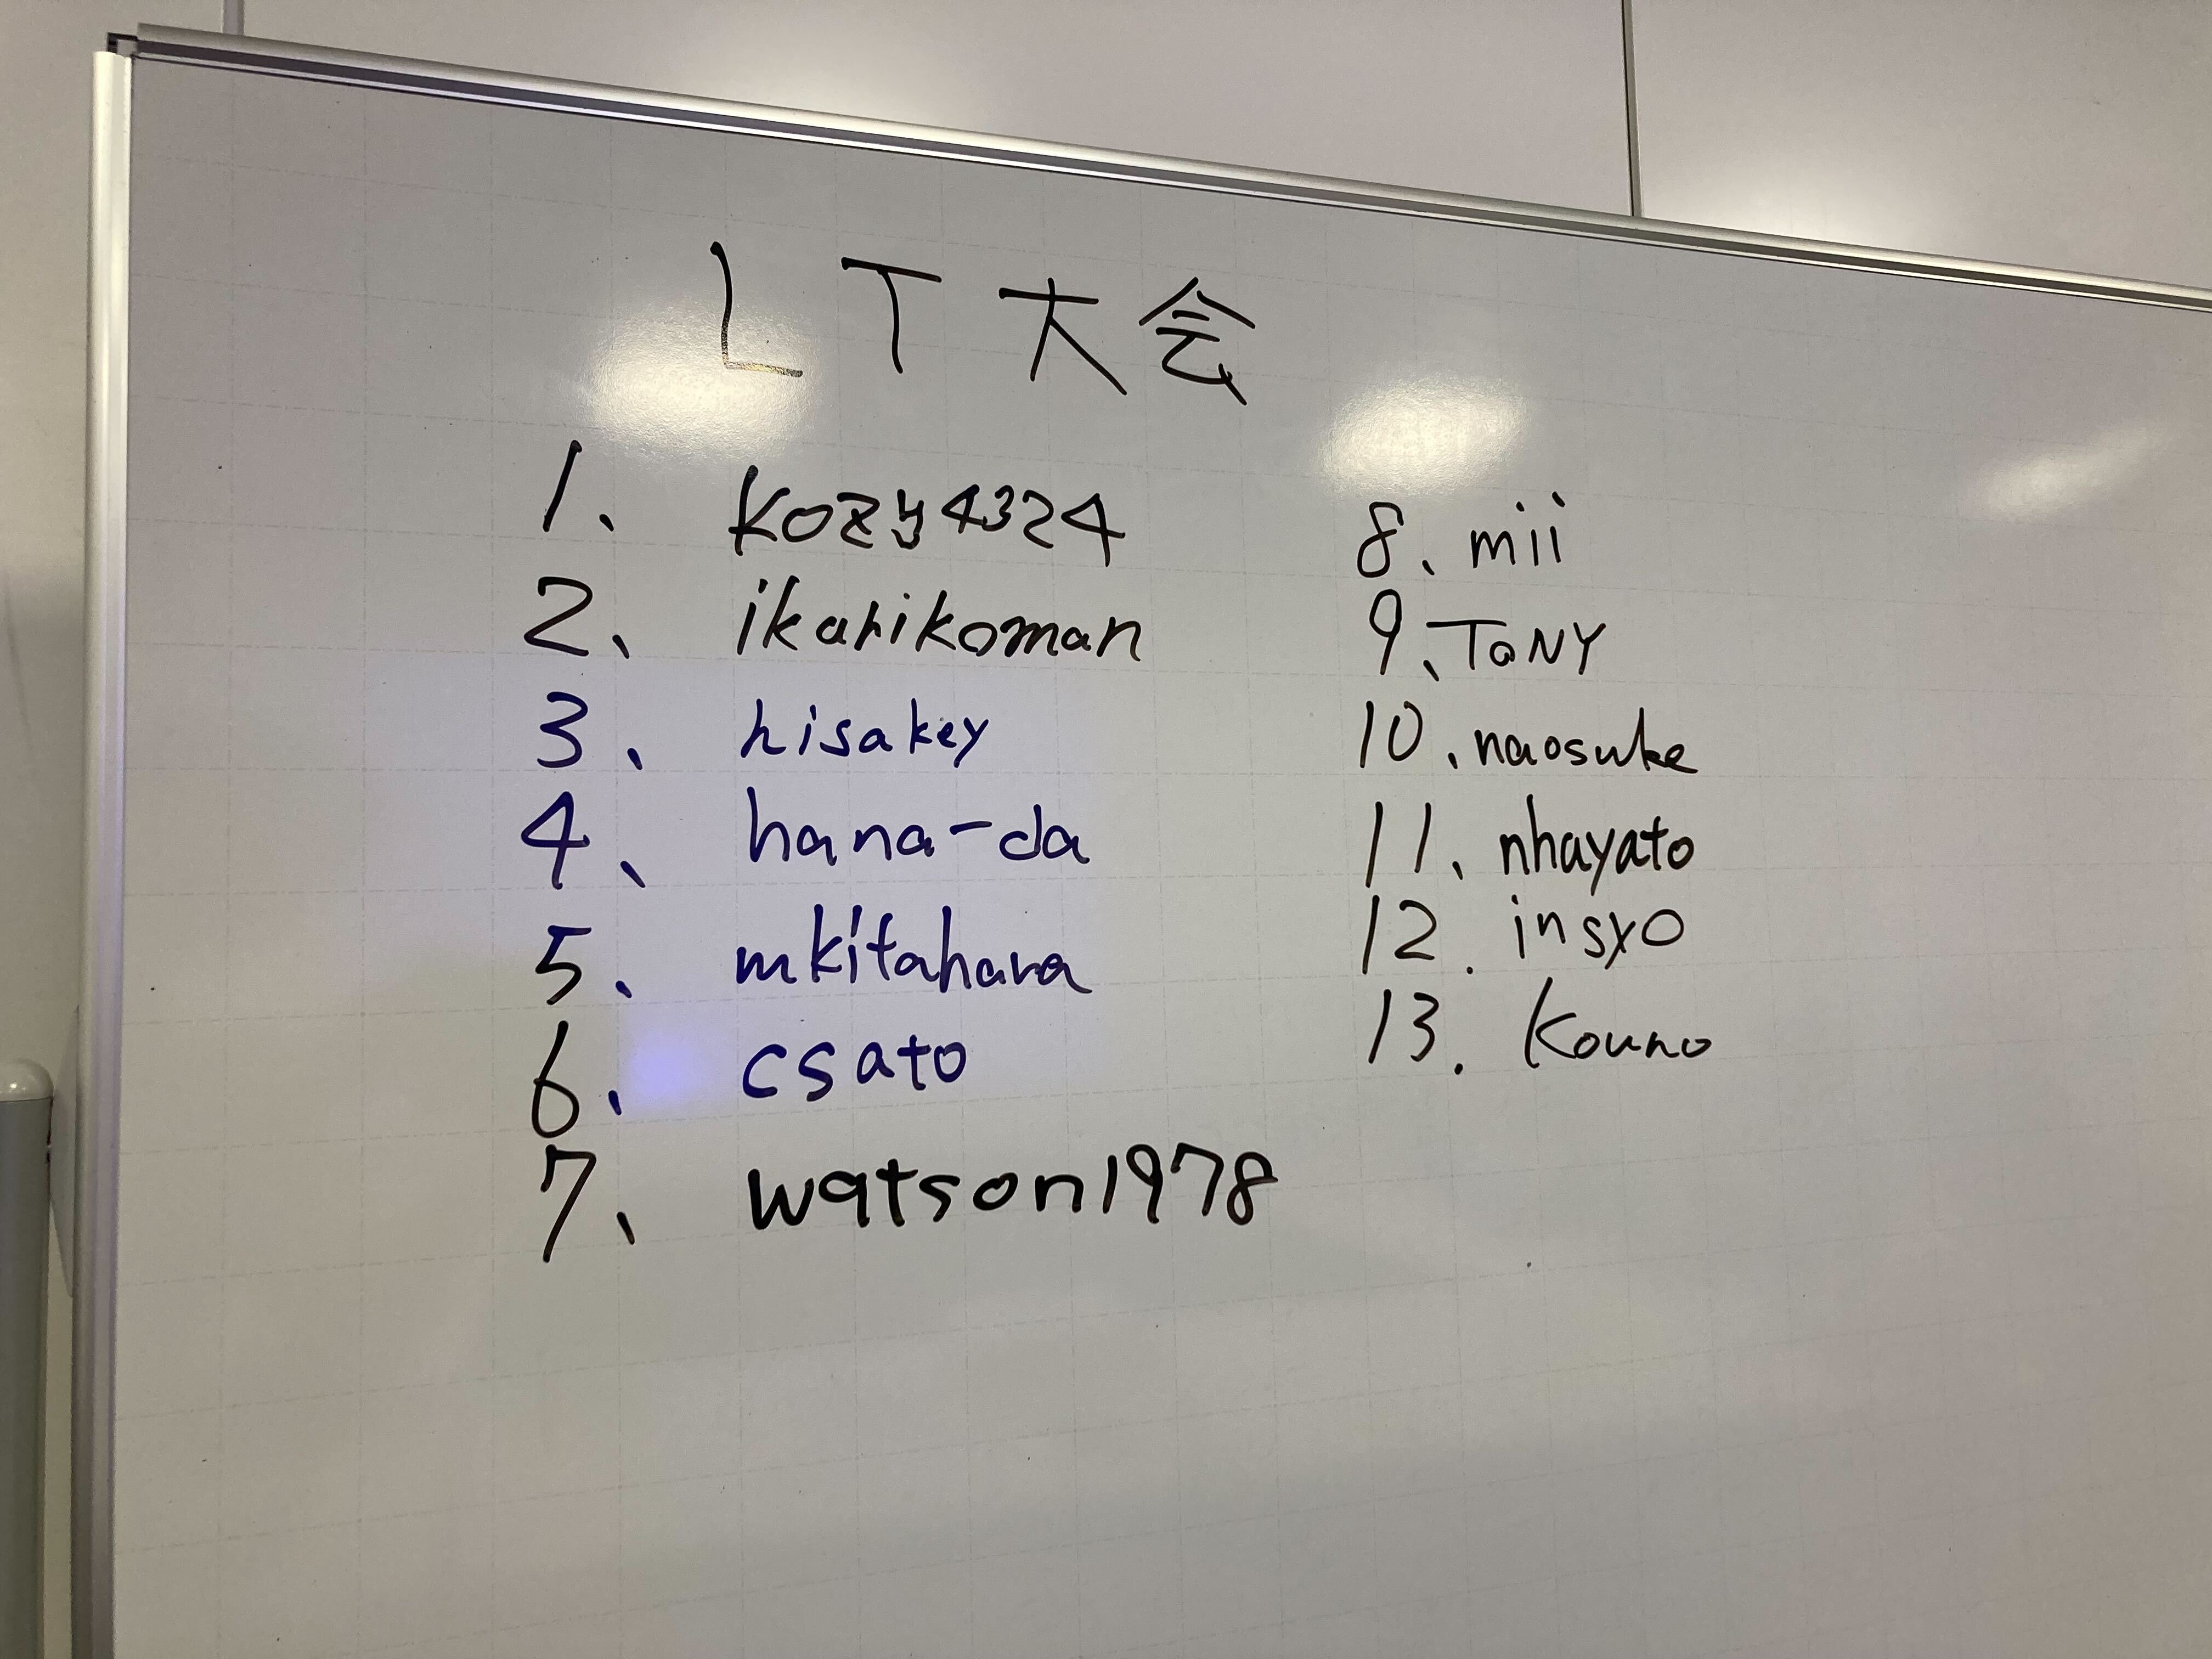 LT大会
1、 kozy4324
2、 ikarikoman
3、 hisakey
4、 hana-da
5、 mkitahara
6、 csato
7、 watson1978
8、mii
9、ToNY
10、naosuke
11、nhayato
12. insyo
13. Kouno